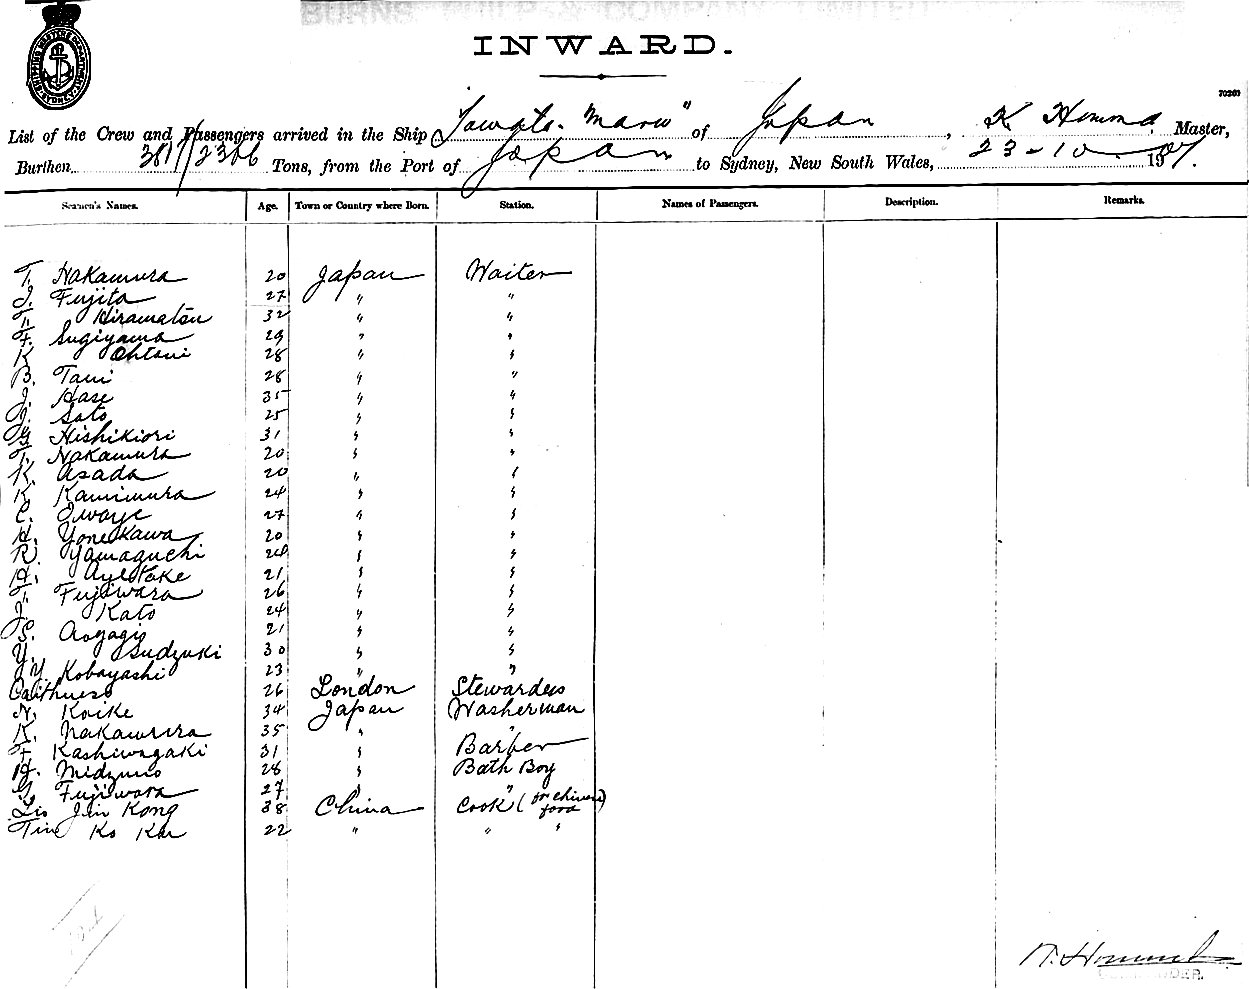 BURNS PHILP & COMPANY LIMITED
INWARD.
SHIPPING MASTERS DEPARTMENT SYDNEY
70261
List of the Crew and Passengers arrived in the Ship Yawata "Maru" of Japan, K Homma Master,
Burthen 3817/2306 Tons, from the Port of Japan to Sydney, New South Wales, 23-10-1907.
Seamen's Names. Age. Town or Country where Born. Station. Names of Passengers. Description. Remarks.
T. Nakamura 20 Japan Waiter
J. Fujita 27 " "
T. Hiramatsu 32 " "
F. Sugiyama 29 " "
K Ohtani 28 " "
B. Tani 28 " "
J. Hase 35 " "
J. Sato 25 " "
G. Hishikiori 31 " "
T. Nakamura 20 " "
K. Asada 20 " "
K. Kamimura 24 " "
C. Iwaye 27 " "
H. Yonekawa 20 " "
R. Yamaguchi 24 " "
H. 21 " "
T. Fujiwara 26 " "
J. Kato 24 " "
S. Aoyagi 21 " "
Y. Sudzuki 30 " "
Y. Kobayashi 23 " "
26 London Stewardess
N. Koike 34 Japan Washerman
K. Nakamura 35 " "
F. Kashiwagaki 31 " Barber
H. Midzuno 28 " Bath Boy
G. Fujiwara 27 " "
Lio Jin Kong 38 China Cook (for chinese food)
Tin Ko Kai 22 " " "
K. Homma
COMMANDER.